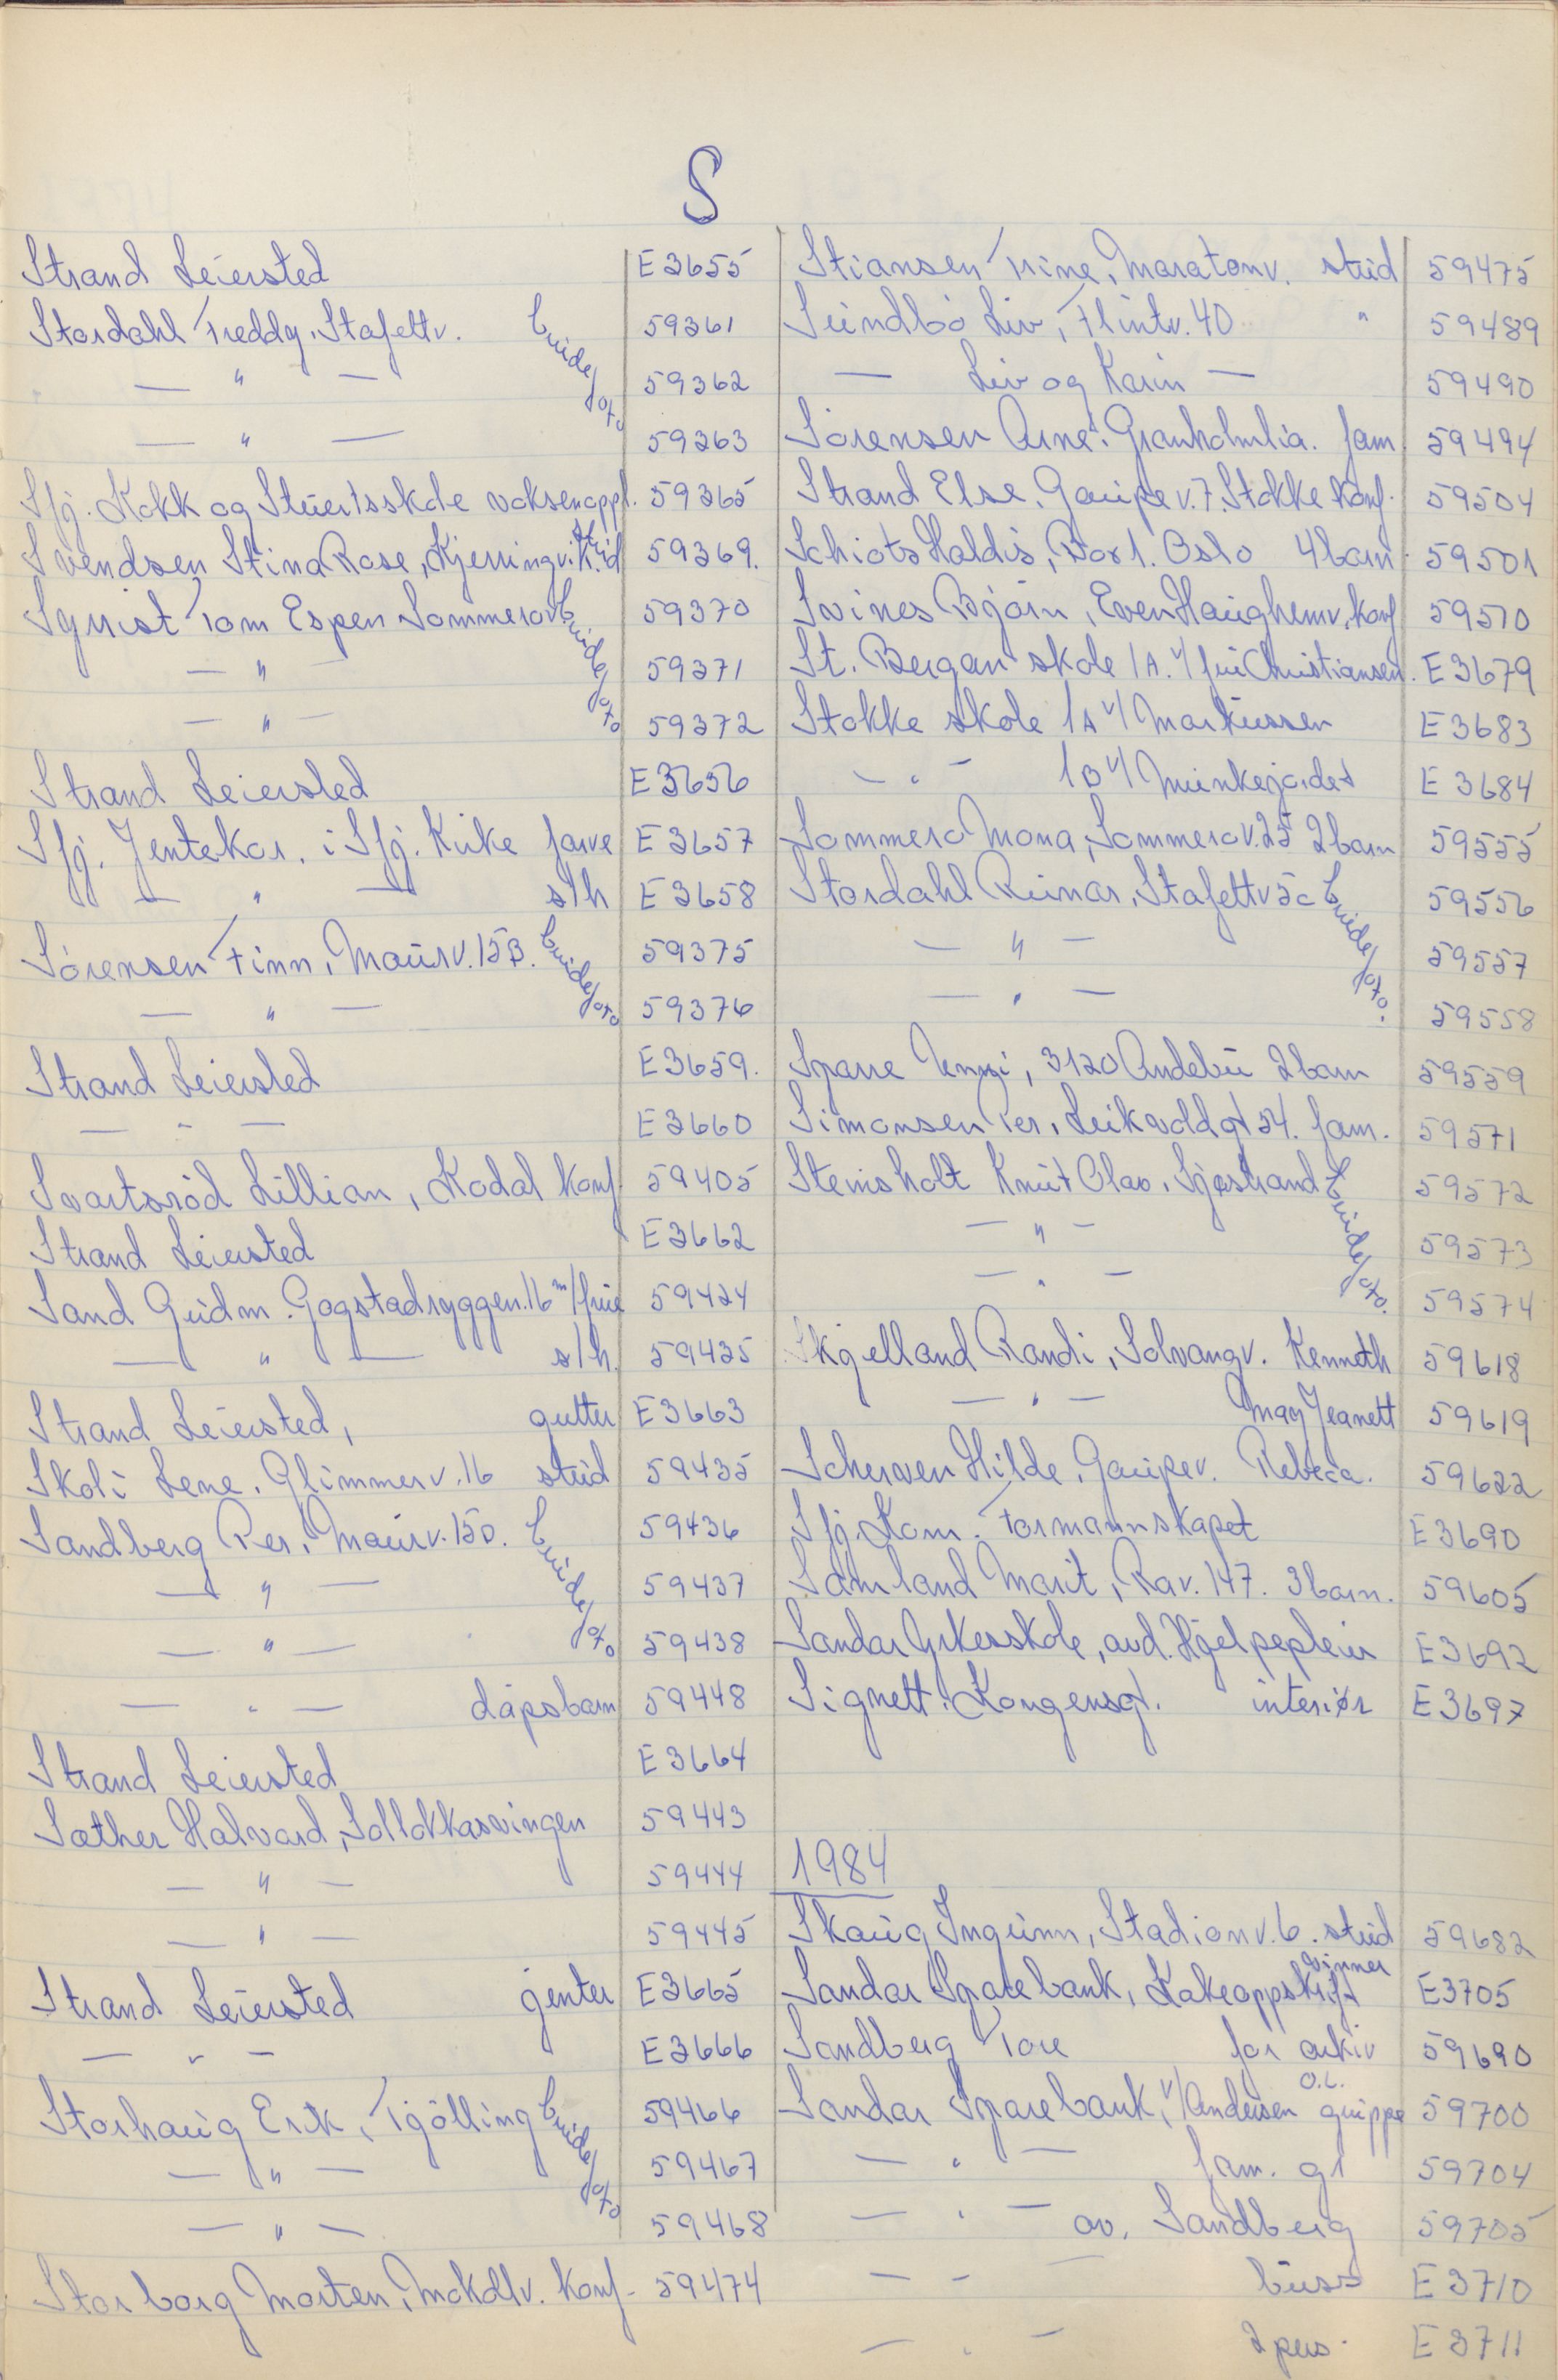 S
Strand Leiersted E3655
Stordahl Freddy. Stafettv. Brudefoto 59361
— " — 59362
— " — 59363
Sfj. Kokk og Stuertsskole voksenoppl. 59365
Svendsen Stina Rose, Kjerringv. stud 59369.
Sqvist Tom Espen Sommerov Brudefoto 59370
— " — 59371
— " — 59372
Strand Leiersted E3656
Sfj. Jentekor. i Sfj. Kirke farve E3657
— " — s/h E3658
Sörensen Finn, Maurv. 15B. Brudefoto 59375
— " — 59376
Strand Leiersted E3659.
— " — E3660
Svartsröd Lillian, Kodal konf 59405
Strand Leiersted E3662
Sand Gudm. Gogstadryggen. 16 m/frue 59424
— " — s/h. 59425
Strand Leiersted, gutter E3663
Skoli Lene. Glimmerv. 16 stud 59435
Sandberg Per, Maurv. 15D. Brudefoto 59436
— " — 59437
— " — 59438
— " — dåpsbarn 59448
Strand Leiersted E3664
Sæther Halvard, Sollökkasvingen 59443
— " — 59444
— " — 59445
Strand Leiersted jenter E3665
— " — E3666
Storhaug Erik, Tjölling Brudefoto 59466
— " — 59467
— " — 59468
Storborg Morten, Mokollv. konf- 59474
Stiansen Trine, Maratonv. stud 59475
Sundbö Liv, Flintv. 40 " 59489
— Liv og Karin — 59490
Sörensen Arne. Granholmlia. fam 59494
Strand Else. Gaupev. 7. Stokke konf. 59504
Schiöts Haldis, Box 1. Oslo 4 barn 59501
Svines Björn, Even Haughemv. konf 59510
St. Bergan skole 1A. v/ fru Christiansen. E3679
Stokke skole 1A v/ Markussen E3683
— " — 1B v/ Munkejordet E3684
Sommero Mona, Sommerov. 25 2 barn 59555
Stordahl Runar, Stafettv 5c Brudefoto. 59556
— " — 59557
— " — 59558
Sparre Unni, 3120 Andebu 2 barn 59559
Simonsen Per, Leikvollgt 54. fam. 59571
Stemsholt Knut Olav, Sjøstrand Brudefoto. 59572
— " — 59573
— " — 59574
Skjelland Randi, Solvangv. Kenneth 59618
— " — May Jeanett 59619
Scherven Hilde, Gaupev. Rebeca. 59622
Sfj. Kom. Formannskapet E3690
Samland Marit, Rav. 147. 3 barn. 59605
Sandar Yrkesskole, avd. Hjelpepleier E3692
Signett. Kongensgt. interiør E3697
1984
Skaug Ingunn, Stadionv. 6. stud 59682
Sandar Sparebank, Kakeoppskrift vinner E3705
Sandberg Tore for arkiv 59690
Sandar Sparebank, v/ Andersen O.L. gruppe 59700
— " — fam. gr 59704
— " — av. Sandberg 59705
— " — buss E3710
— " — 2 pers. E3711